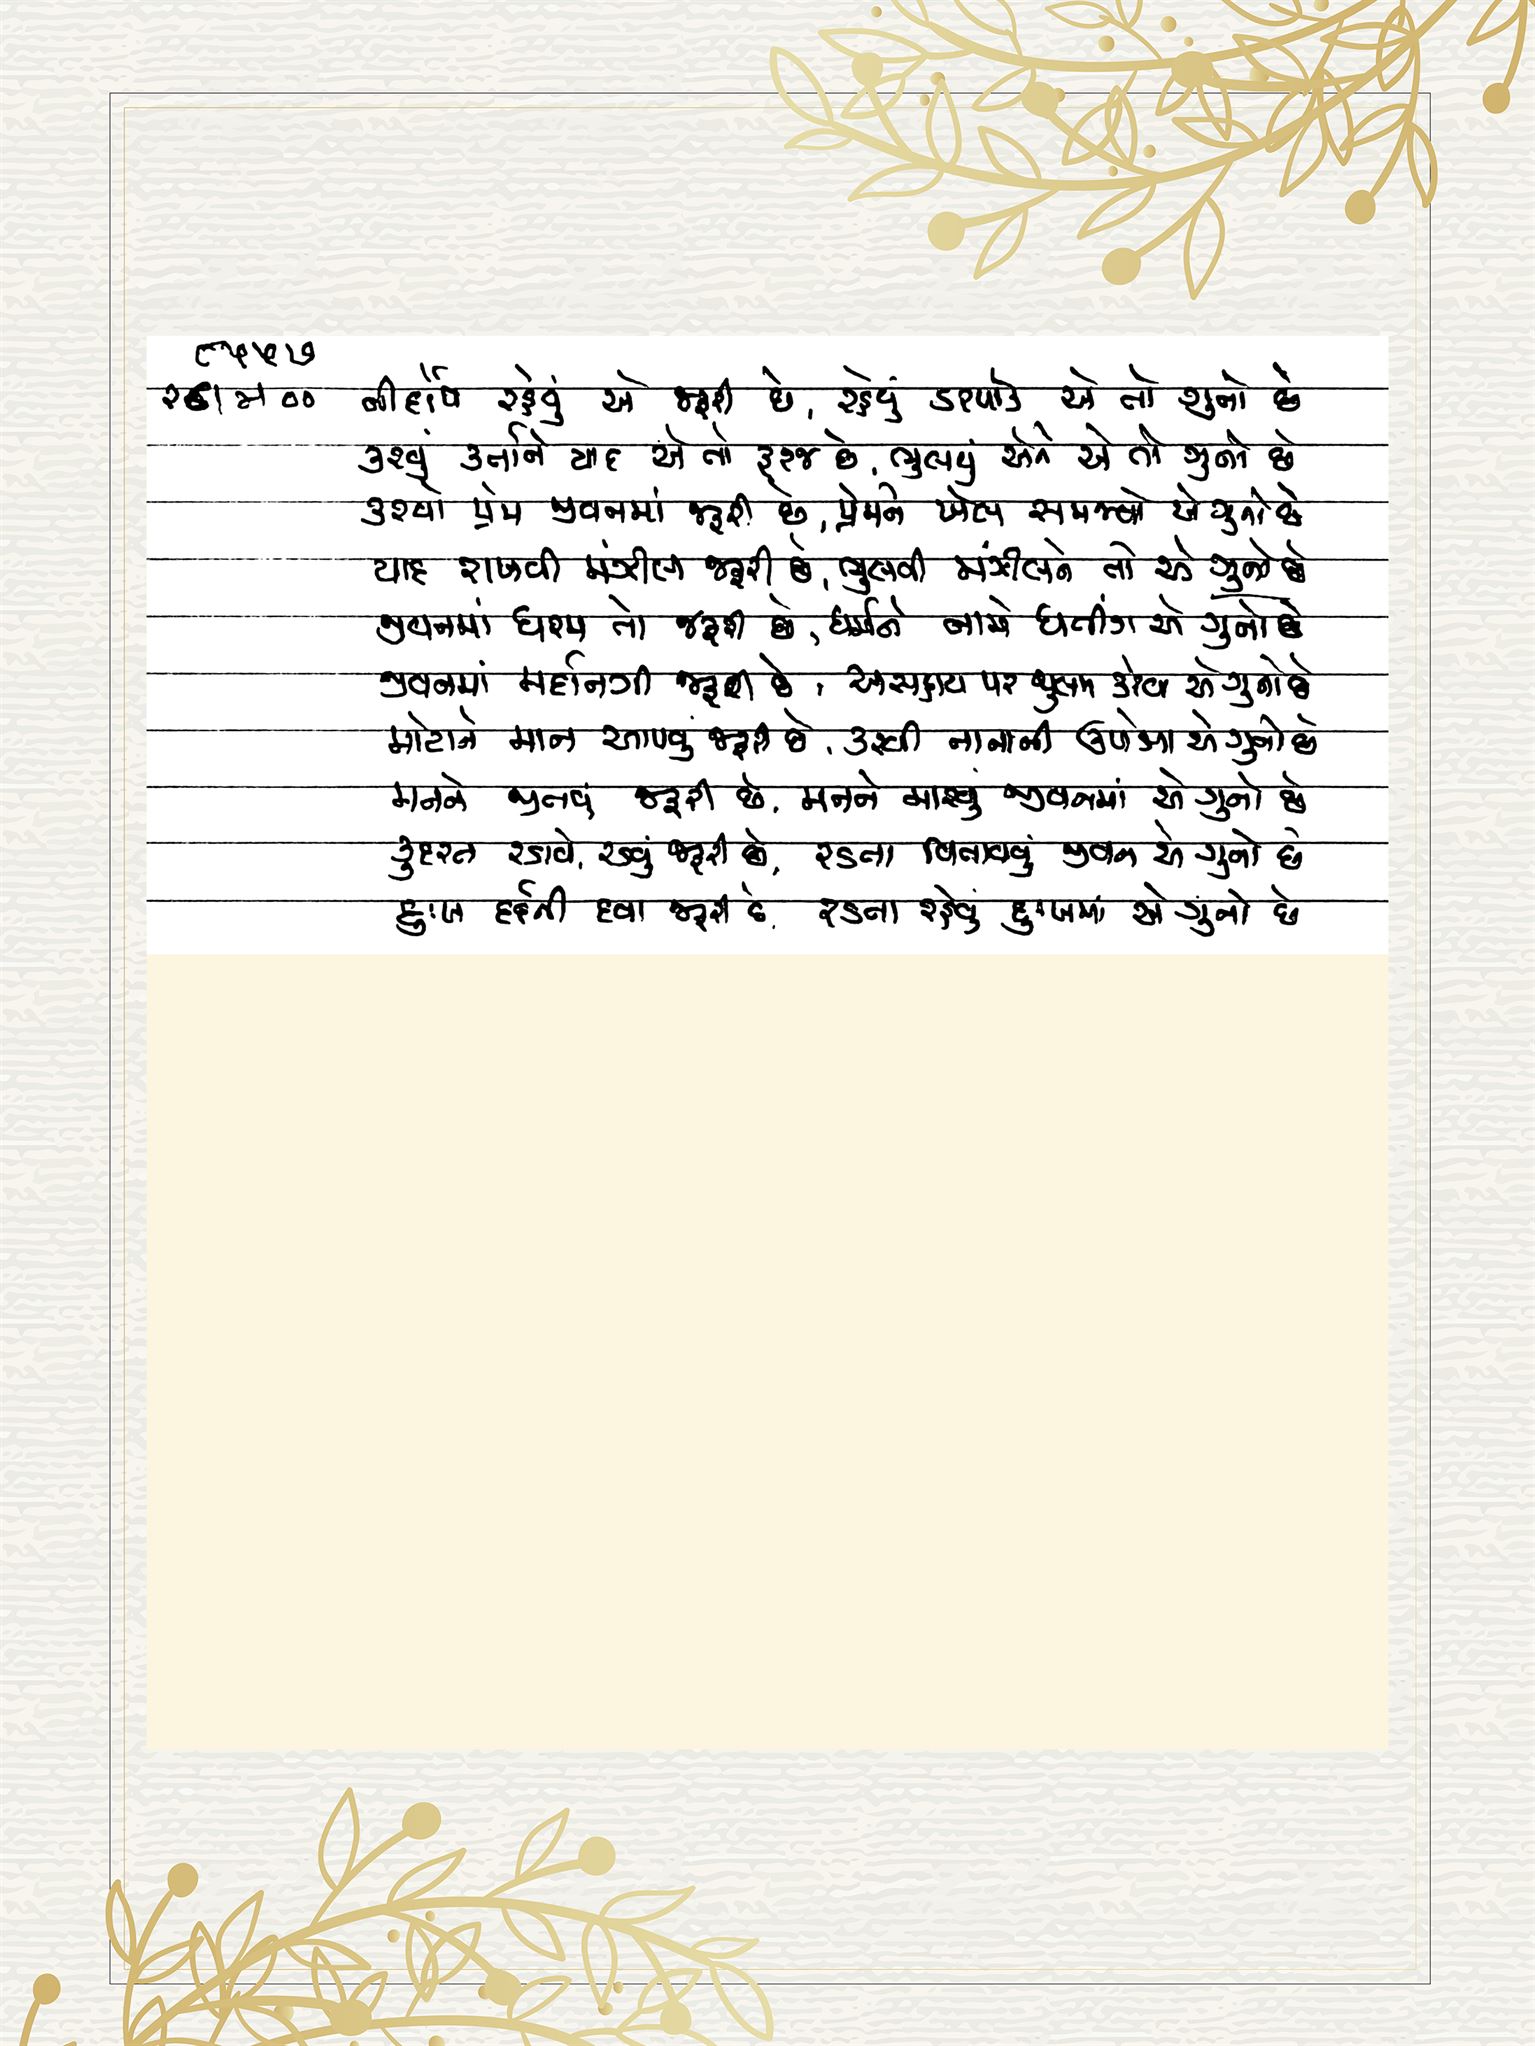 નીર્દોષ રહેવું એ જરૂરી છે, રહેવું ડરપોક એ તો ગુનો છે
કરવું કર્તાને યાદ એ તો ફરજ છે, ભુલવું એને એ તો ગુનો છે
કરવો પ્રેમ જીવનમાં જરૂરી છે, પ્રેમને ખેલ સમજવો એ ગુનો છે
યાદ રાખવી મંઝીલ જરૂરી છે, ભુલવી મંઝીલને તો એ ગુનો છે
જીવનમાં ધરમ તો જરૂરી છે, ધર્મને નામે ધતીંગ એ ગુનો છે
જીવનમાં મર્દાનગી જરૂરી છે, અસહાય પર જુલમ કરવા એ ગુનો છે
મોટાને માન આપવું જરૂરી છે, કરવી નાનાની ઉપેક્ષા એ ગુનો છે
મનને જીતવું જરૂરી છે, મનને મારવું જીવનમાં એ ગુનો છે
કુદરત રડાવે, રડવું જરૂરી છે, રડતા વિતાવવું જીવન એ ગુનો છે
દુઃખ દર્દની દવા જરૂરી છે, રડતા રહેવું દુઃખમાં એ ગુનો છે